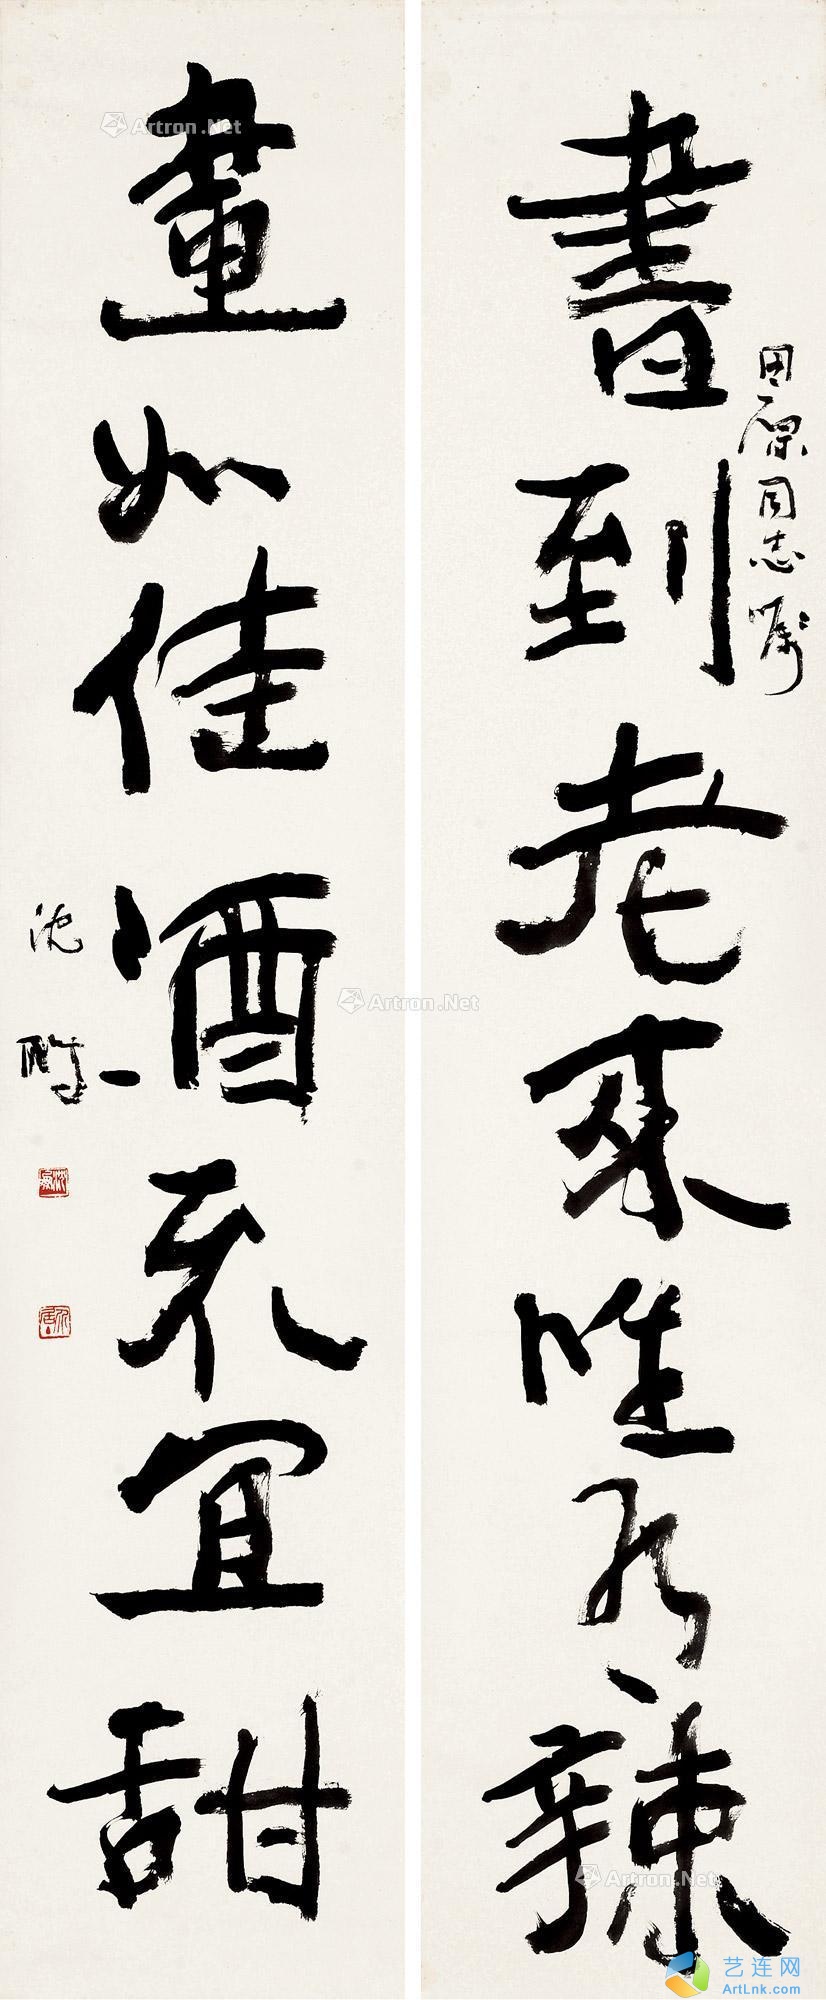 田原同志嘱
書到老來唯辣
畫如佳酒不宜甜
沈鹏
Artron.Net
Artron.Net
Artron.Net
艺连网
ArtLnk.com